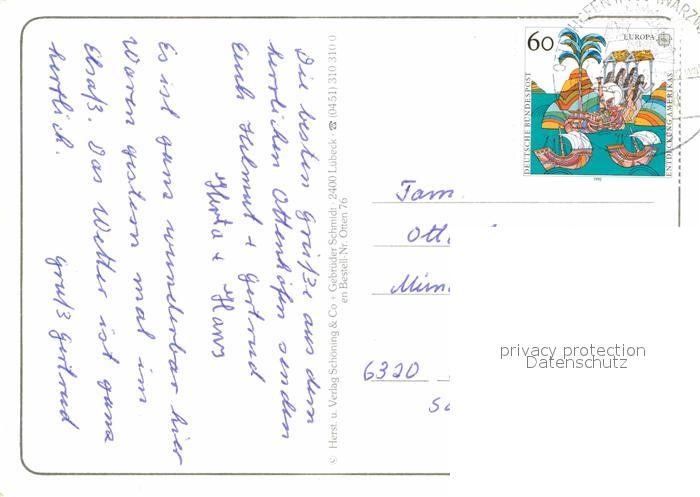 Die besten Grüße aus dem
herrlichen Ottenhöfen senden
Euch Helmut + Gertrud
Herta + Hans
Es ist ganz wunderbar hier
Waren gestern mal im
Elsaß. Das Wetter ist ganz
herrlich.
Gruß Gertrud
© Herst. u. Verlag Schöning & Co + Gebrüder Schmidt · 2400 Lübeck ☎ (0451) 310 310 0
en Bestell-Nr. Otten 76
60
EUROPA
DEUTSCHE BUNDESPOST
ENTDECKUNG AMERIKAS
1992
Fam.
Ott
6320
privacy protection
Datenschutz